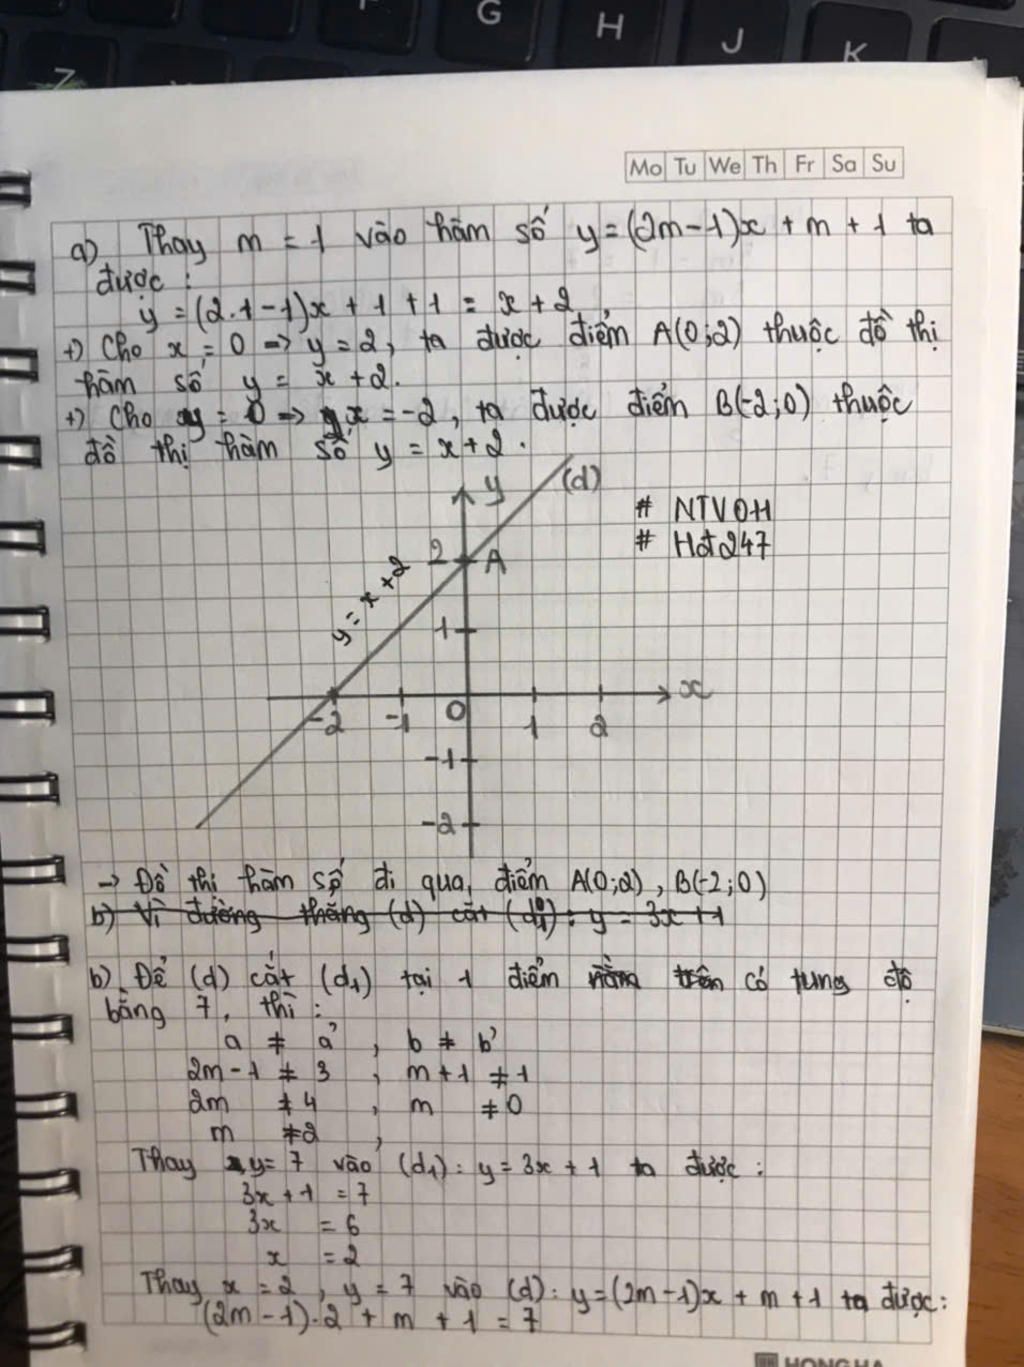 G H J K
Z
Mo Tu We Th Fr Sa Su
a) Thay m = 1 vào hàm số y = (2m-1)x + m + 1 ta
được :
y = (2.1-1)x + 1 + 1 = x + 2
+) Cho x = 0 => y = 2, ta được điểm A(0;2) thuộc đồ thị
hàm số y = x+2.
+) Cho y = 0 => x = -2, ta được điểm B(-2;0) thuộc
đồ thị hàm số y = x+2.
y (d)
# NTVOH
2 A # Hđ247
y = x + 2
1
x
-2 -1 O 1 2
-1
-2
→ Đồ thị hàm số đi qua điểm A(0;2), B(-2;0)
b) Vì đường thẳng (d) cắt (d1): y = 3x+1
b) Để (d) cắt (d1) tại 1 điểm nằm trên có tung độ
bằng 7, thì :
a ≠ a' , b ≠ b'
2m-1 ≠ 3 , m+1 ≠ 1
2m ≠ 4 , m ≠ 0
m ≠ 2 ,
Thay y = 7 vào (d1): y = 3x + 1 ta được :
3x + 1 = 7
3x = 6
x = 2
Thay x = 2, y = 7 vào (d): y = (2m-1)x + m + 1 ta được:
(2m-1).2 + m + 1 = 7
HONG HA